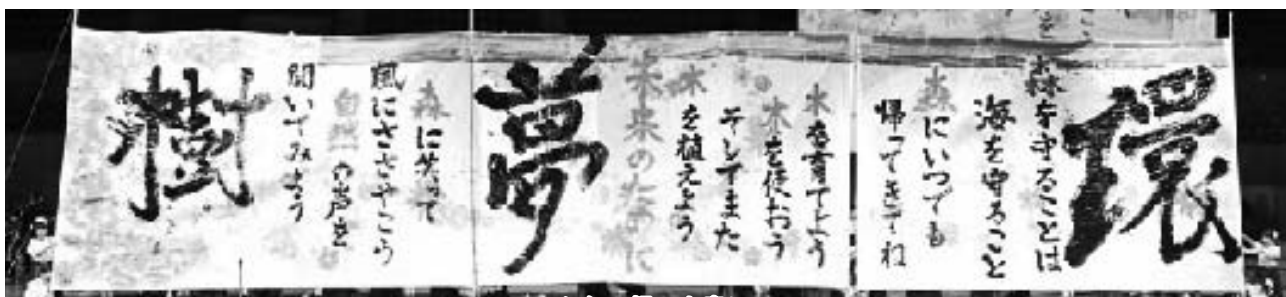 環
森を守ることは
海を守ること
森にいつでも
帰ってきてね
木を育てよう
木を使おう
そしてまた
木を植えよう
未来のために
夢
森に笑って
風にささやこう
自然の声を
聞いてみよう
樹